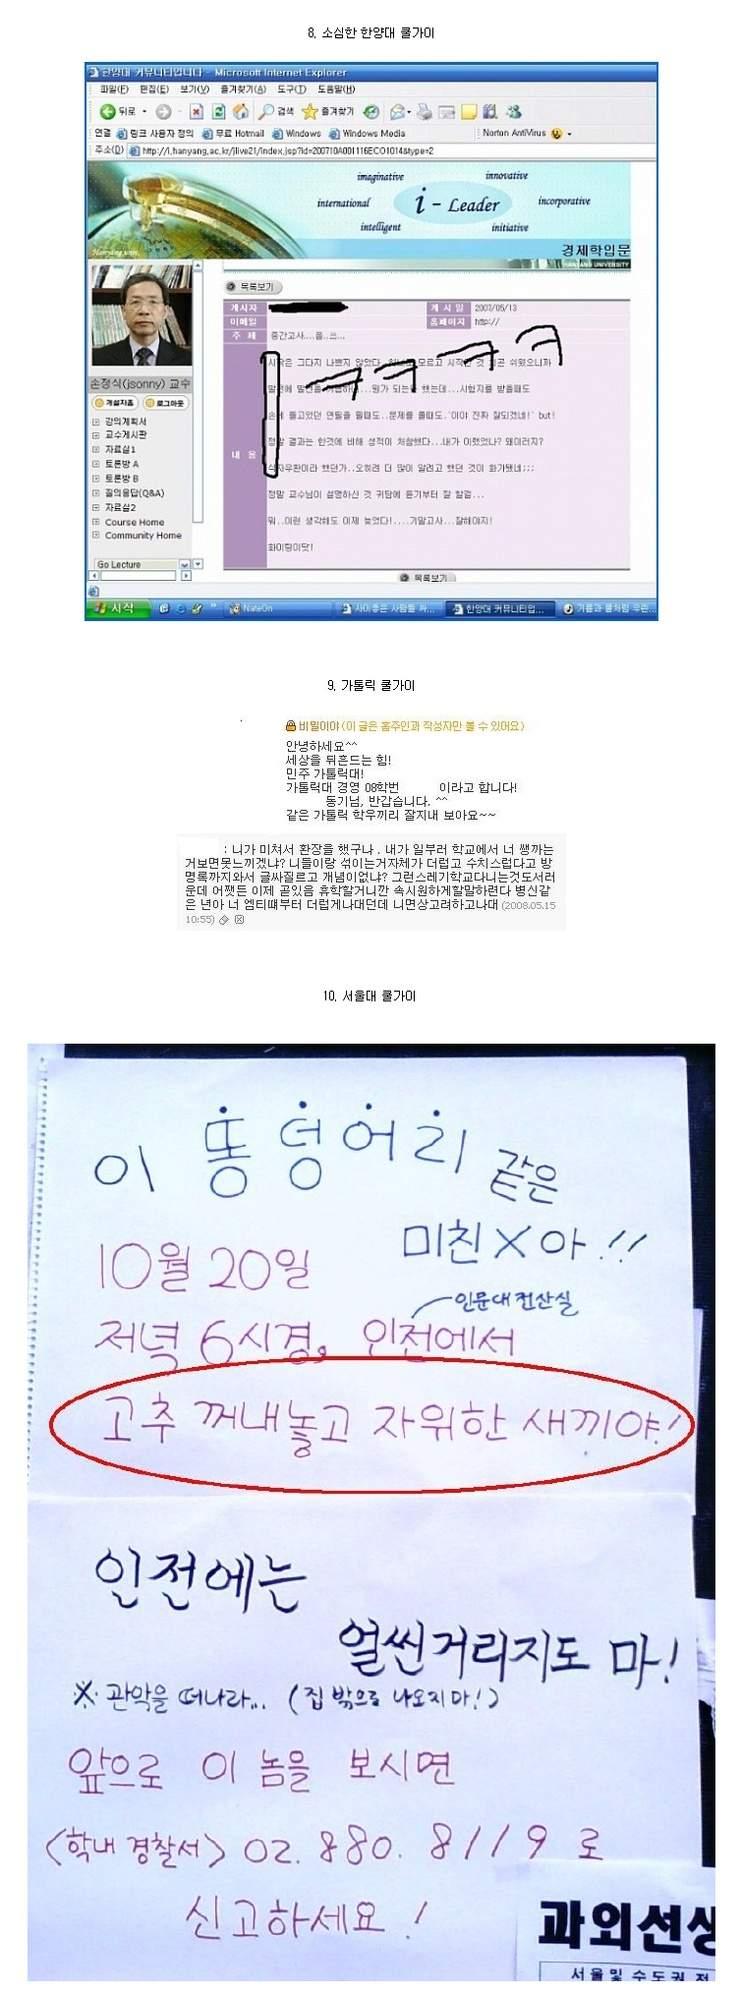 8. 소심한 한양대 쿨가이
한양대 커뮤니티입니다 - Microsoft Internet Explorer
파일(F) 편집(E) 보기(V) 즐겨찾기(A) 도구(T) 도움말(H)
뒤로 검색 즐겨찾기
연결 링크 사용자 정의 무료 Hotmail Windows Windows Media Norton AntiVirus
주소(D) http://i.hanyang.ac.kr/jlive21/index.jsp?id=200710A001116ECO1014&type=2
imaginative innovative
international i - Leader incorporative
intelligent initiative
경제학입문
HANYANG UNIVERSITY
목록보기
게시자 게시일 2007/05/13
이메일 홈페이지 http://
주 제 중간고사...음..쓰...
시작은 그다지 나쁘지 않았다. 모르고 시작한 것 치곤 쉬웠으니까
말전에 발전을 뭔가 되는듯 했는데...시험지를 받을때도
손에 들고있던 연필을 뗄때도..문제를 풀때도..'이야 진짜 잘되겠네!' but!
정말 결과는 한것에 비해 성적이 처참했다...내가 이랬었나? 왜이러지?
내 용
식자우환이라 했던가..오히려 더 많이 알려고 했던 것이 화가됐네;;;
정말 교수님이 설명하신 것 귀담에 듣기부터 잘 할걸...
뭐..이런 생각해도 이제 늦었다!....기말고사...잘해야지!
화이팅이닷!
ㅋㅋㅋㅋ
목록보기
손정식(jsonny) 교수
개설자홈 로그아웃
강의계획서
교수게시판
자료실1
토론방 A
토론방 B
질의응답(Q&A)
자료실2
Course Home
Community Home
Go Lecture
시작 NateOn 사이좋은 사람들 싸... 한양대 커뮤니티입... 기름과 물처럼 우린...
9. 가톨릭 쿨가이
비밀이야 (이 글은 홈주인과 작성자만 볼 수 있어요)
안녕하세요^^
세상을 뒤흔드는 힘!
민주 가톨릭대!
가톨릭대 경영 08학번 이라고 합니다!
동기님, 반갑습니다. ^^
같은 가톨릭 학우끼리 잘지내 보아요~~
: 니가 미쳐서 환장을 했구나 . 내가 일부러 학교에서 너 쌩까는
거보면못느끼겠냐? 니들이랑 섞이는거자체가 더럽고 수치스럽다고 방
명록까지와서 글싸질르고 개념이없냐? 그런스레기학교다니는것도서러
운데 어쨋든 이제 곧있음 휴학할거니깐 속시원하게할말하련다 병신같
은 년아 너 엠티때부터 더럽게나대던데 니면상고려하고나대 (2008.05.15
10:55)
10. 서울대 쿨가이
이 똥덩어리 같은
미친X아!!
10월 20일
인문대 전산실
저녁 6시경, 인전에서
고추 꺼내놓고 자위한 새끼야!
인전에는
얼씬거리지도 마!
※ 관악을 떠나라... (집 밖으로 나오지마!)
앞으로 이 놈을 보시면
<학내 경찰서> 02. 880. 8119로
신고하세요!
과외선생
서울및 수도권 전